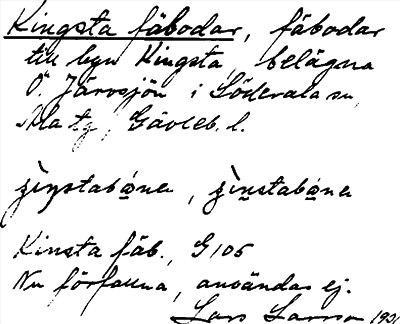 Kingsta fäbodar, fäbodar
till byn Kingsta, belägna
Ö. Järvsjön i Söderala sn,
Ala tg, Gävleb. l.
Kinsta fäb., G 105
Nu förfallna, användas ej.
Lars Larsson 1931